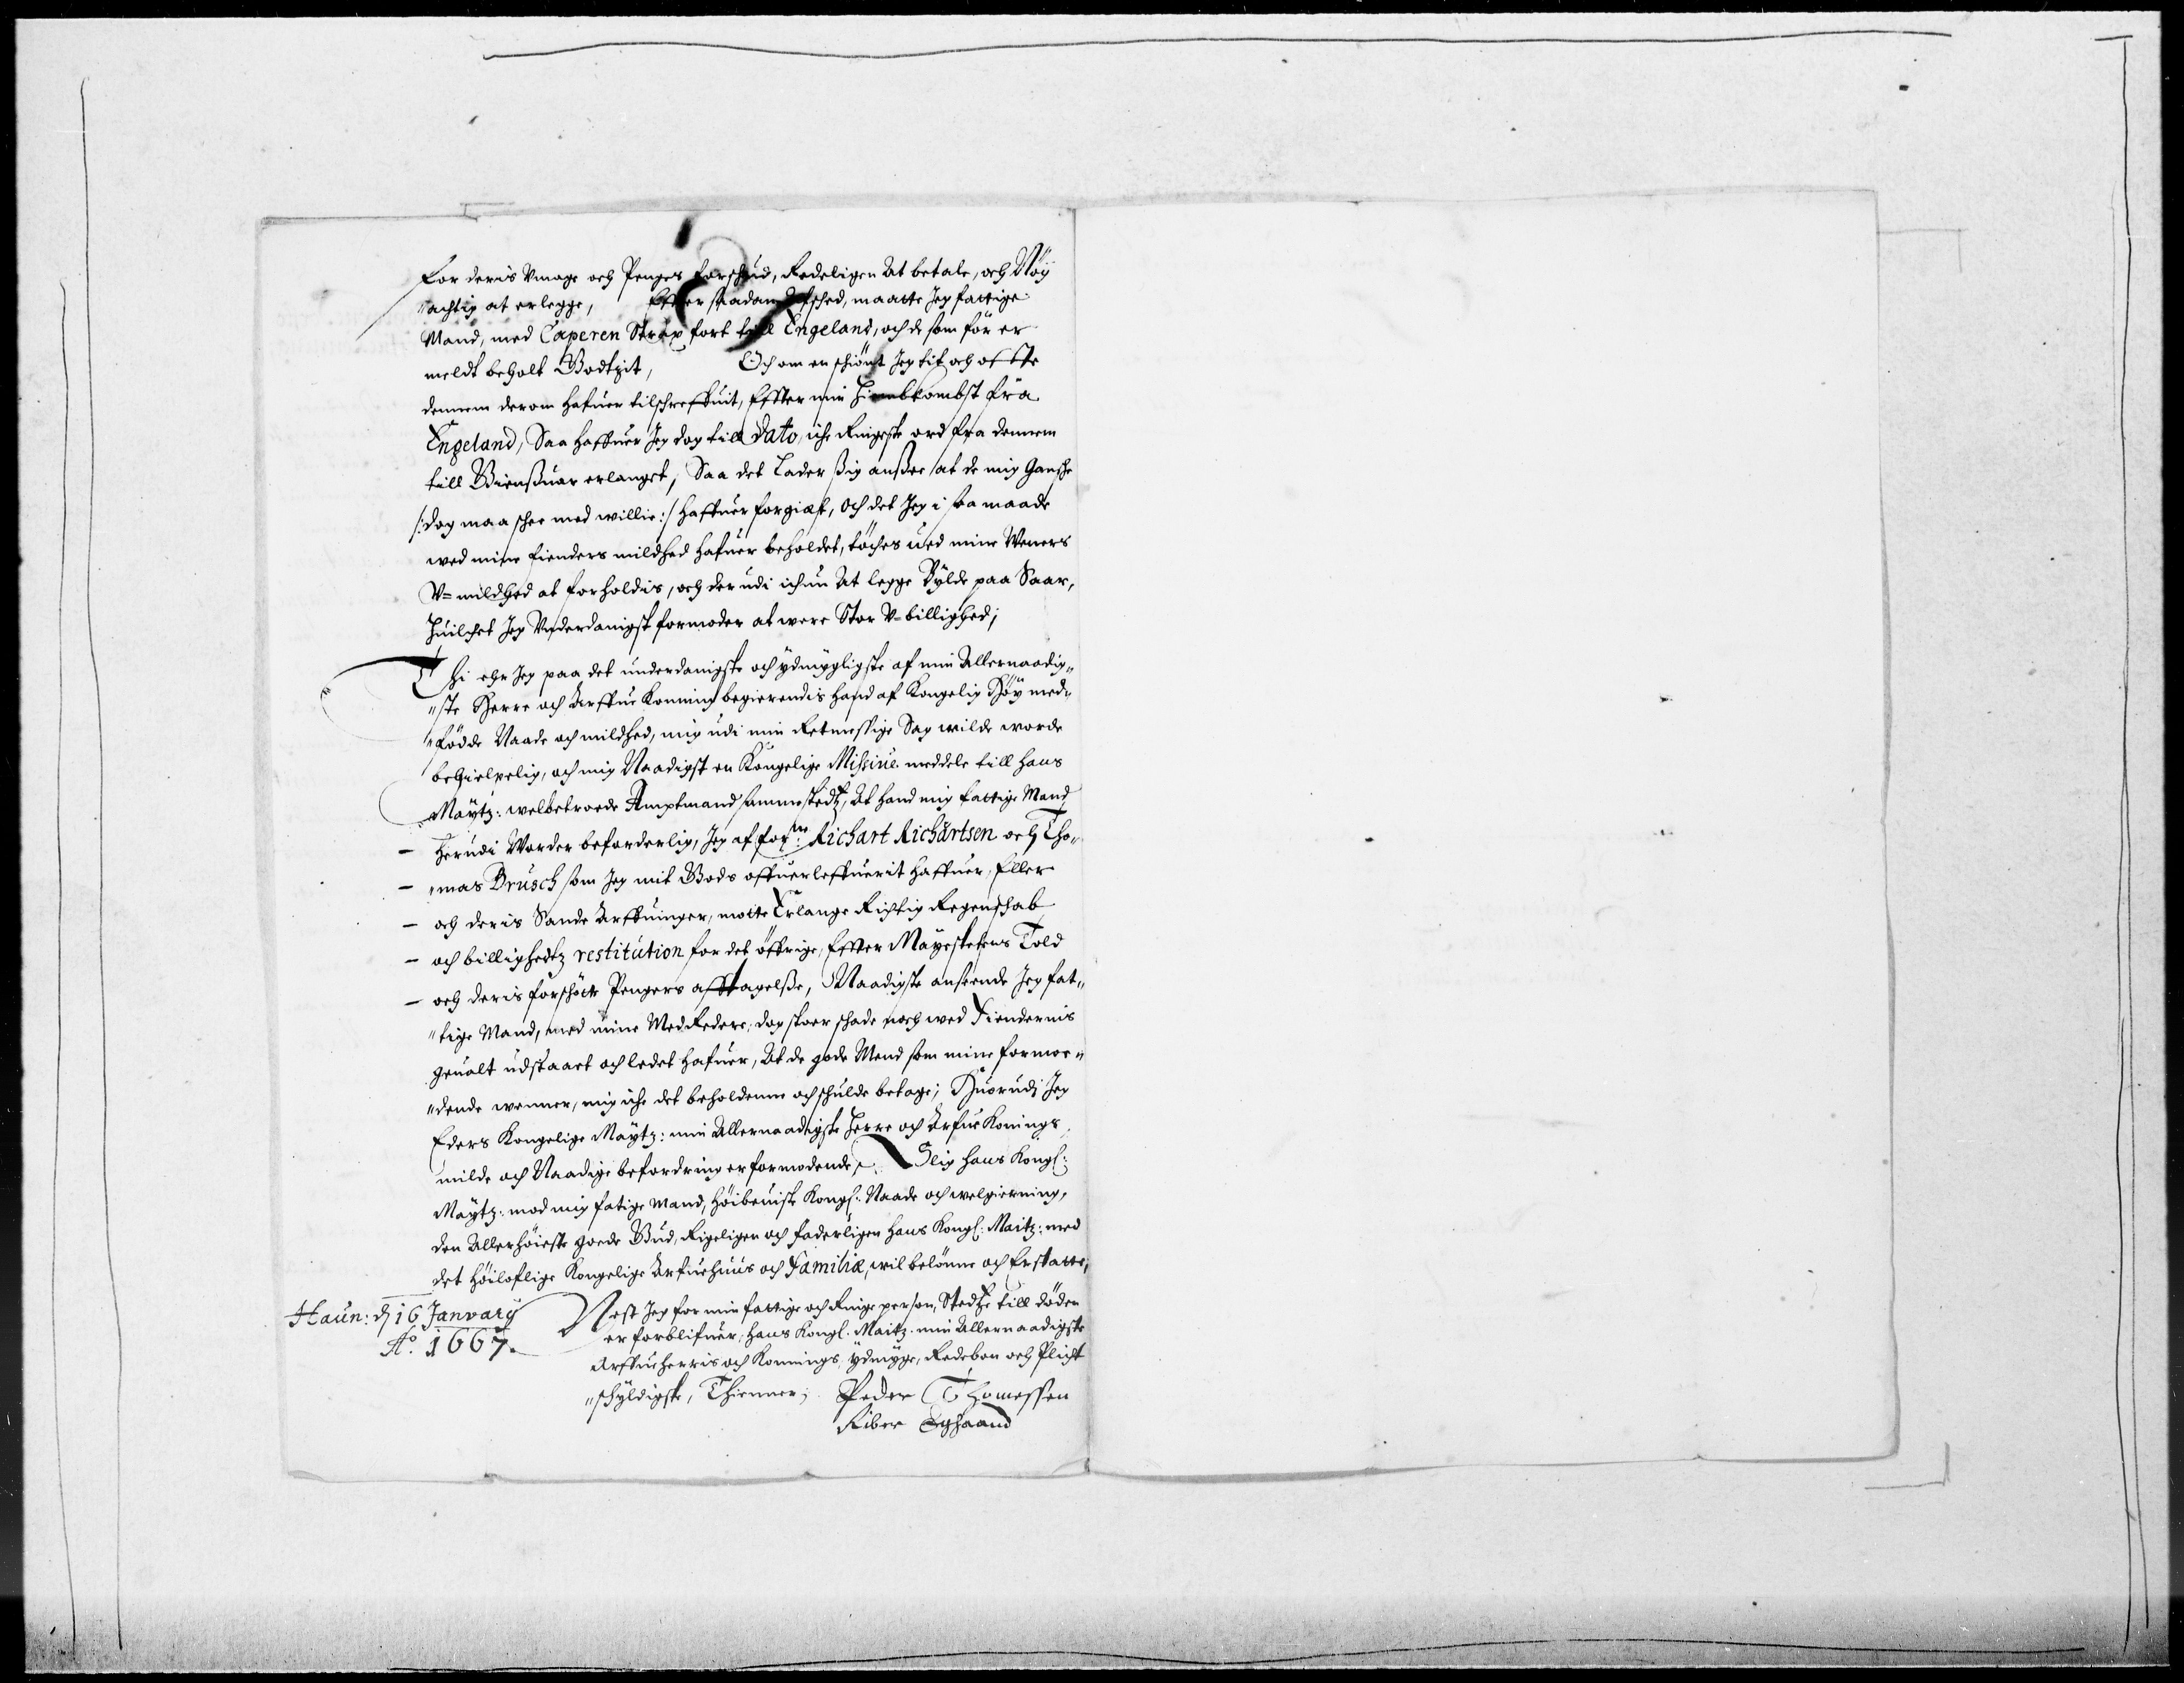 for deris Vmage och Penges forschud, Redeligen At betale, och Nöy
"achtig at erlegge, Effter saadan Afsched, maatte Jeg fattige
Mand, med Caperen Strax fort till Engeland, och de som för er
meldt beholt Bodtzit, Och om en schiönt Jeg tit och offte
dennem derom hafuer tilschreffuit, Effter min Himbkombst fra
Engeland, Saa haffuer Jeg dog till Dato, iche Ringeste ord fra dennem
till Giensuar erlanget, Saa det Lader sig ansee at de mig gansche
/: dog maa schee med willie :/ haffuer forgiet, och det Jeg i saa maade
wed mine fienders mildhed hafuer beholdet, töches ued mine Weners
V=mildhed at forholdis, och der udi ichun At legge Bylde paa Saar,
Huilchet Jeg Vnderdanigst formoder at were Stor V=billighed;
Thi ehr Jeg paa det underdanigste och ydmygligste af min Allernaadig„
"ste Herre och Arffue Konning begierendis hand af Kongelig Höy med„
"födde Naade och mildhed, mig udi min Retmessige Sag wilde worde
behielpelig, och mig Naadigst en Kongelige Missive meddele till hans
Maytz: welbetroede Amptmand sammestedtz, At hand mig fattige Mand
- Herudi Worder beforderlig, Jeg af forne Richart Richartsen och Tho„
- "mas Brusch som Jeg mit Gods offuerleffuerit haffuer, Eller
- och deris Sande Arffuinger, motte Erlange Richtig Regenschab
- och billighedtz restitution for det öffrige, Effter Mayestetens Told
- och deris forschötte Pengers afftagelse, Naadigste anseende Jeg fat„
"tige Mand, med mine MedRedere, dog stoer schade noch wed Fiendernis
geualt udstaaet och ledet hafuer, At de gode Mend som mine formee„
"dende wenner, mig iche det beholdenne och schulde betage; Huorudj Jeg
Eders Kongelige Maytz: min Allernaadigste Herre och Arfue Konings
milde och Naadige befordring er formodende, Slig hans Kongl:
Maytz: mod mig fatige Mand, Höibeuiste Kongl: Naade och welgierning,
den Allerhöieste goede Gud, Rigeligen och faderligen Hans Kongl: Maitz: med
det Höiloflige Kongelige Arfuehuus och Familiæ, wil belönne och Erstatte,
Haun: d 16 Janvary
Ao. 1667.
Nest Jeg for min fattige och Ringe person, Stedtze till döden
er forblifuer, Hans Kongl. Maitz. min Allernaadigste
Arffueherris och Konnings, ydmyge, Redebon och Plicht
"schyldigste, Thienner; Peder Thomessen
Riber Eghaand